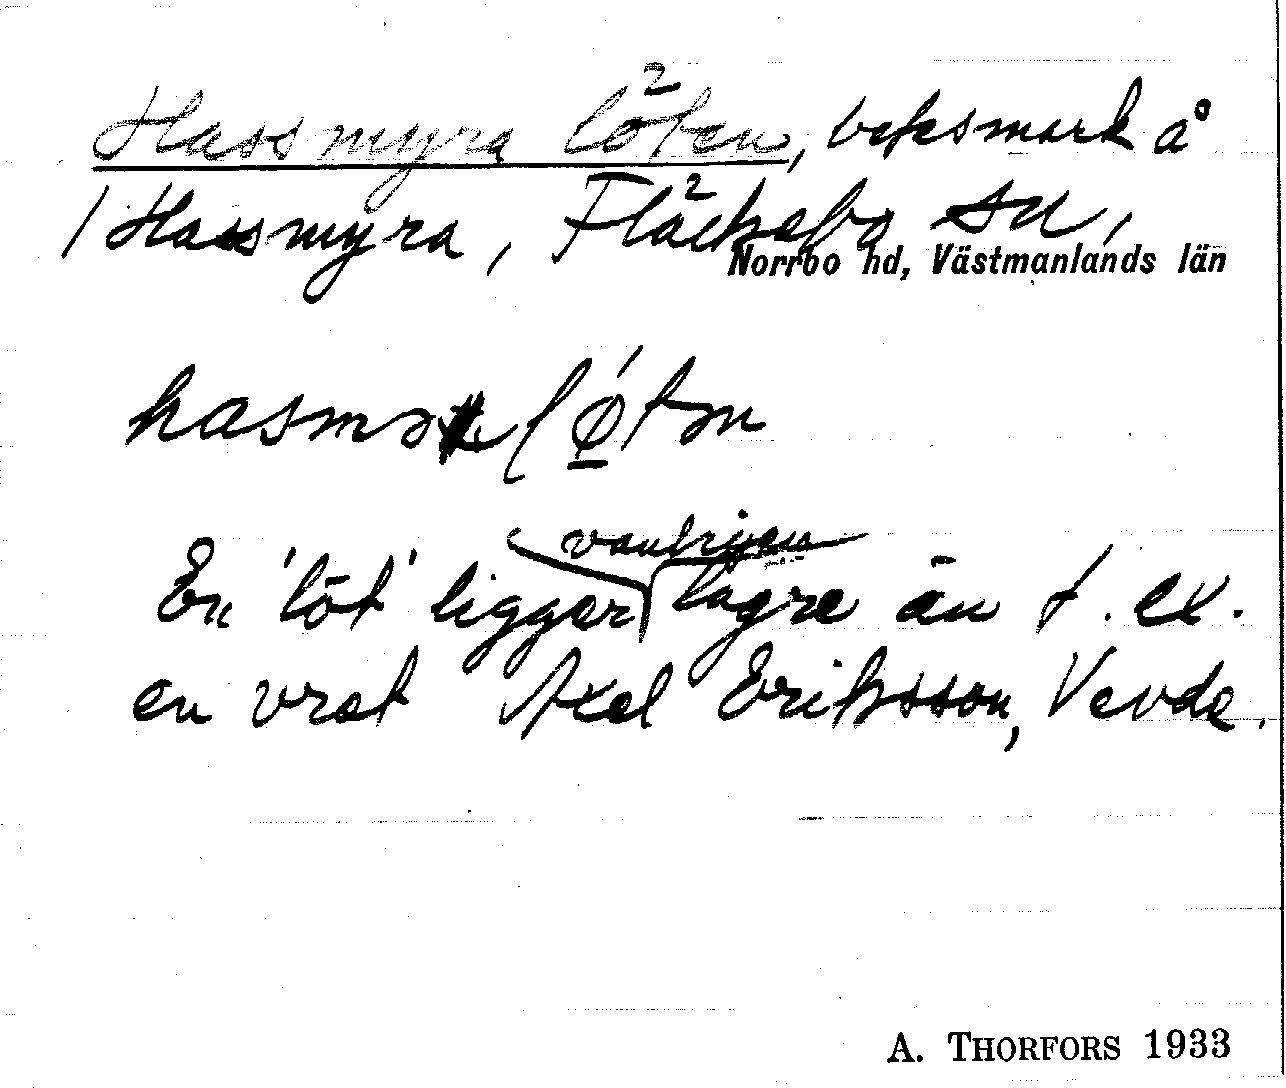 Hassmyra löten, betesmark å
/ Hassmyra, Fläckebo sn,
Norrbo hd, Västmanlands län
løtṇ
vanligen
En 'löt' ligger lägre än t. ex.
en vret Axel Eriksson, Vevde.
A. THORFORS 1933